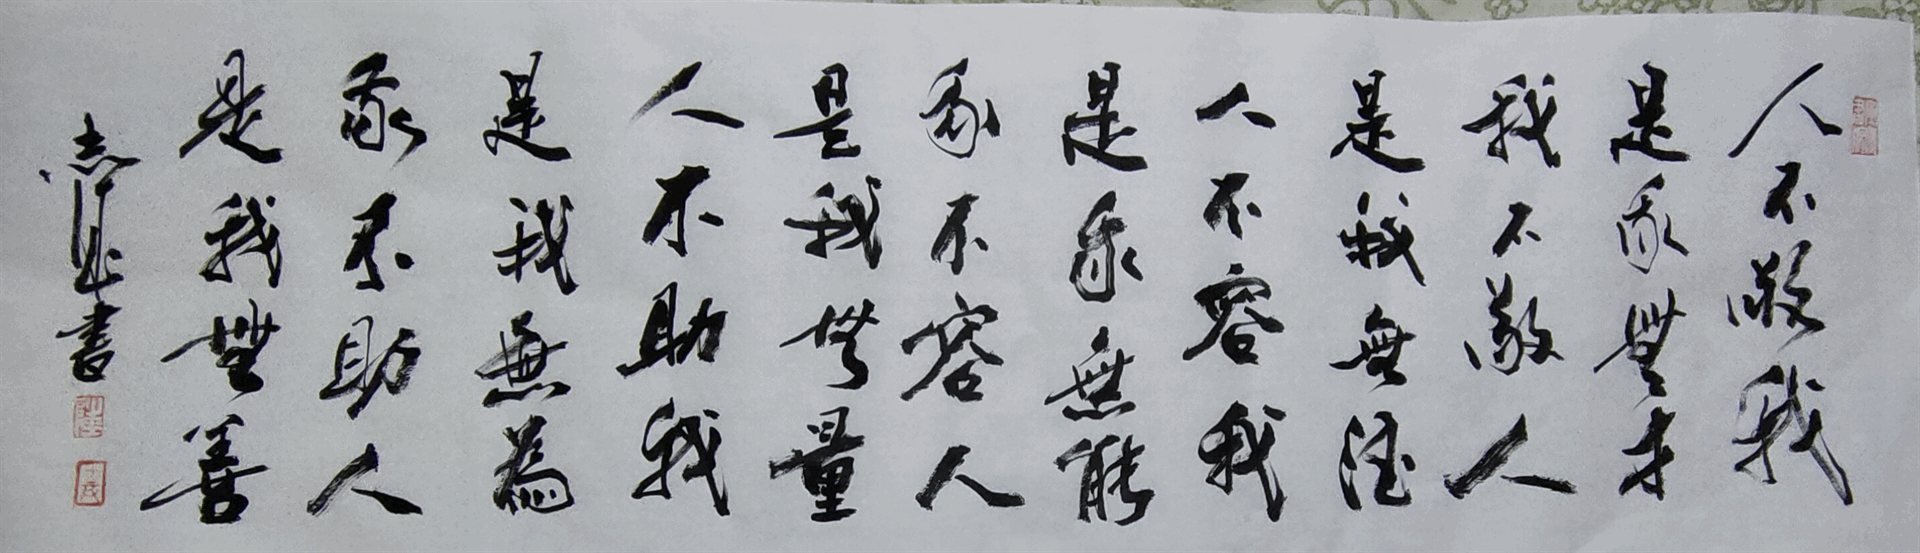 人不敬我
是我無才
我不敬人
是我無德
人不容我
是我無能
我不容人
是我無量
人不助我
是我無為
我不助人
是我無善
志
書